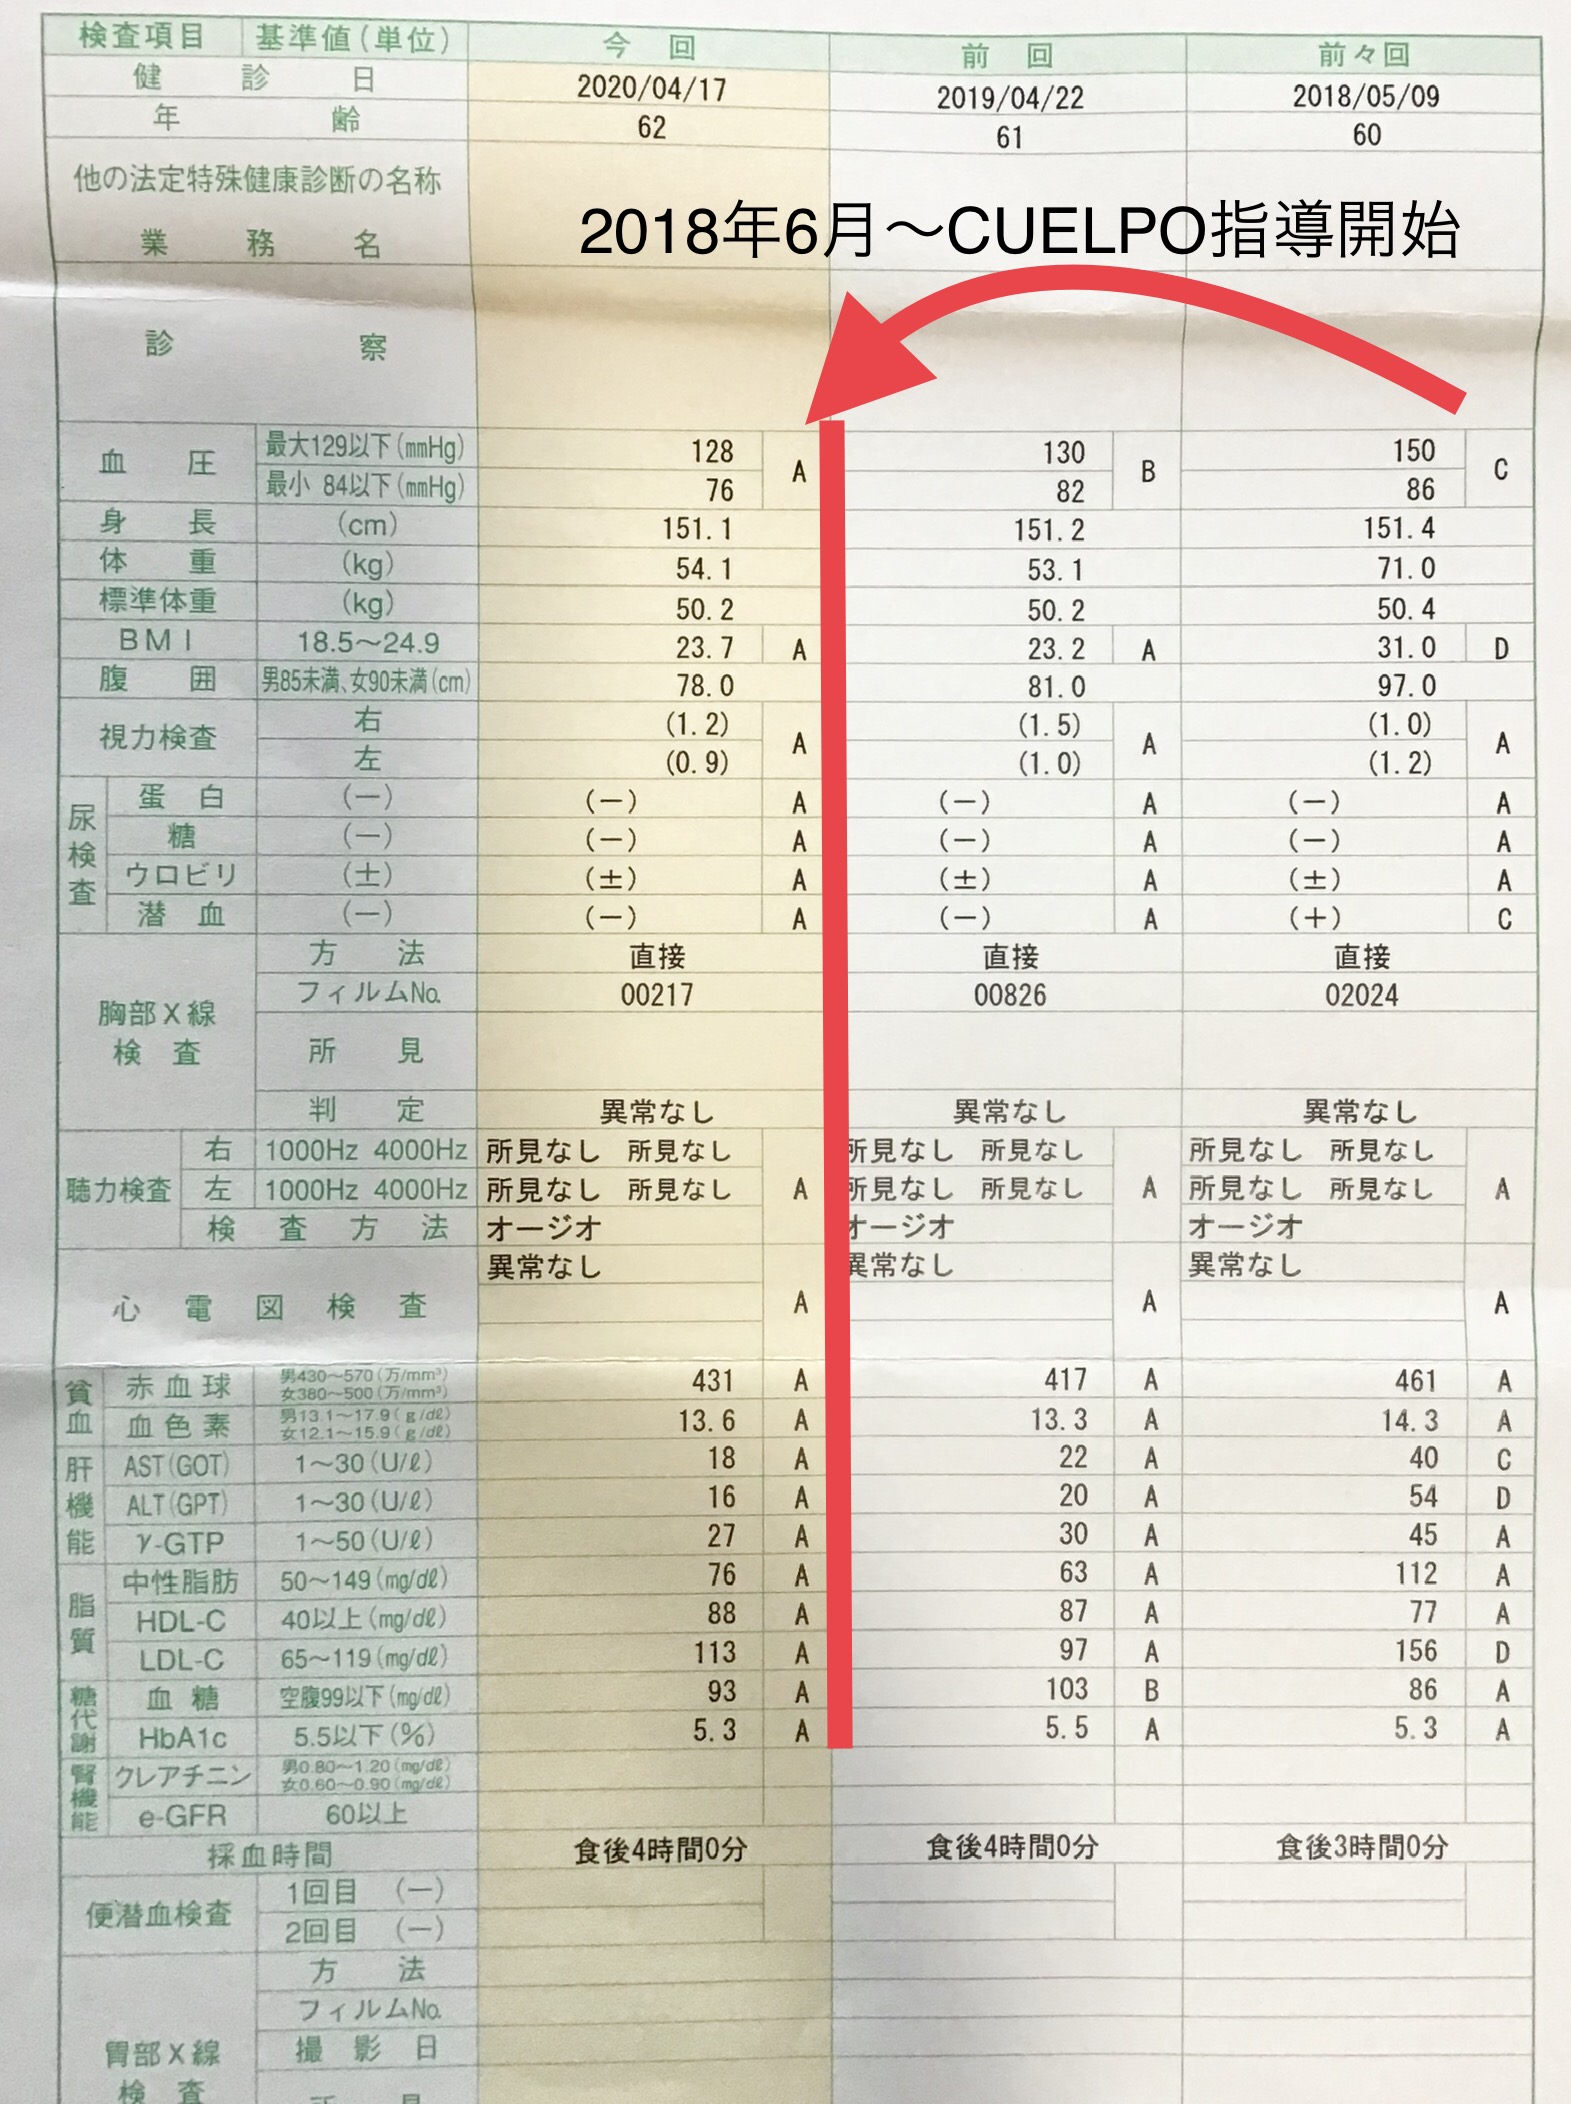 検査項目 基準値(単位) 今回 前回 前々回
健診日 2020/04/17 2019/04/22 2018/05/09
年齢 62 61 60
他の法定特殊健康診断の名称
業務名
2018年6月〜CUELPO指導開始
診察
血圧 最大129以下(mmHg) 128 A 130 B 150 C
最小 84以下(mmHg) 76 82 86
身長 (cm) 151.1 151.2 151.4
体重 (kg) 54.1 53.1 71.0
標準体重 (kg) 50.2 50.2 50.4
BMI 18.5〜24.9 23.7 A 23.2 A 31.0 D
腹囲 男85未満、女90未満(cm) 78.0 81.0 97.0
視力検査 右 (1.2) A (1.5) A (1.0) A
左 (0.9) (1.0) (1.2)
尿検査 蛋白 (−) (−) A (−) A (−) A
糖 (−) (−) A (−) A (−) A
ウロビリ (±) (±) A (±) A (±) A
潜血 (−) (−) A (−) A (+) C
胸部X線検査 方法 直接 直接 直接
フィルムNo. 00217 00826 02024
所見
判定 異常なし 異常なし 異常なし
聴力検査 右 1000Hz 4000Hz 所見なし 所見なし 所見なし 所見なし 所見なし 所見なし
左 1000Hz 4000Hz 所見なし 所見なし A 所見なし 所見なし A 所見なし 所見なし A
検査方法 オージオ オージオ オージオ
心電図検査 異常なし A 異常なし A 異常なし A
貧血 赤血球 男430〜570(万/mm³) 女380〜500(万/mm³) 431 A 417 A 461 A
血色素 男13.1〜17.9(g/dℓ) 女12.1〜15.9(g/dℓ) 13.6 A 13.3 A 14.3 A
肝機能 AST(GOT) 1〜30(U/ℓ) 18 A 22 A 40 C
ALT(GPT) 1〜30(U/ℓ) 16 A 20 A 54 D
γ-GTP 1〜50(U/ℓ) 27 A 30 A 45 A
脂質 中性脂肪 50〜149(mg/dℓ) 76 A 63 A 112 A
HDL-C 40以上(mg/dℓ) 88 A 87 A 77 A
LDL-C 65〜119(mg/dℓ) 113 A 97 A 156 D
糖代謝 血糖 空腹99以下(mg/dℓ) 93 A 103 B 86 A
HbA1c 5.5以下(%) 5.3 A 5.5 A 5.3 A
腎機能 クレアチニン 男0.80〜1.20(mg/dℓ) 女0.60〜0.90(mg/dℓ)
e-GFR 60以上
採血時間 食後4時間0分 食後4時間0分 食後3時間0分
便潜血検査 1回目 (−)
2回目 (−)
胃部X線検査 方法
フィルムNo.
撮影日